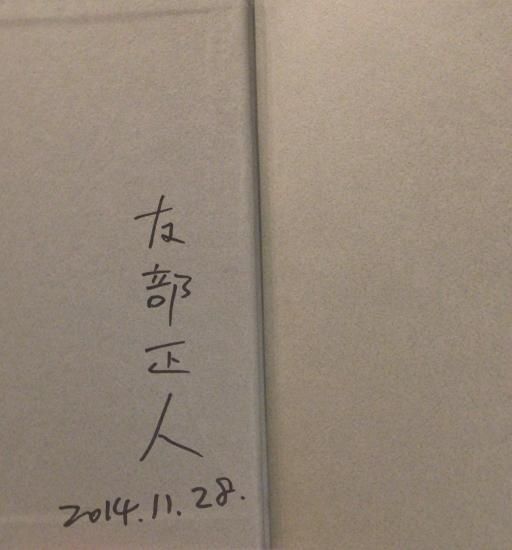 友部正人
2014.11.28.